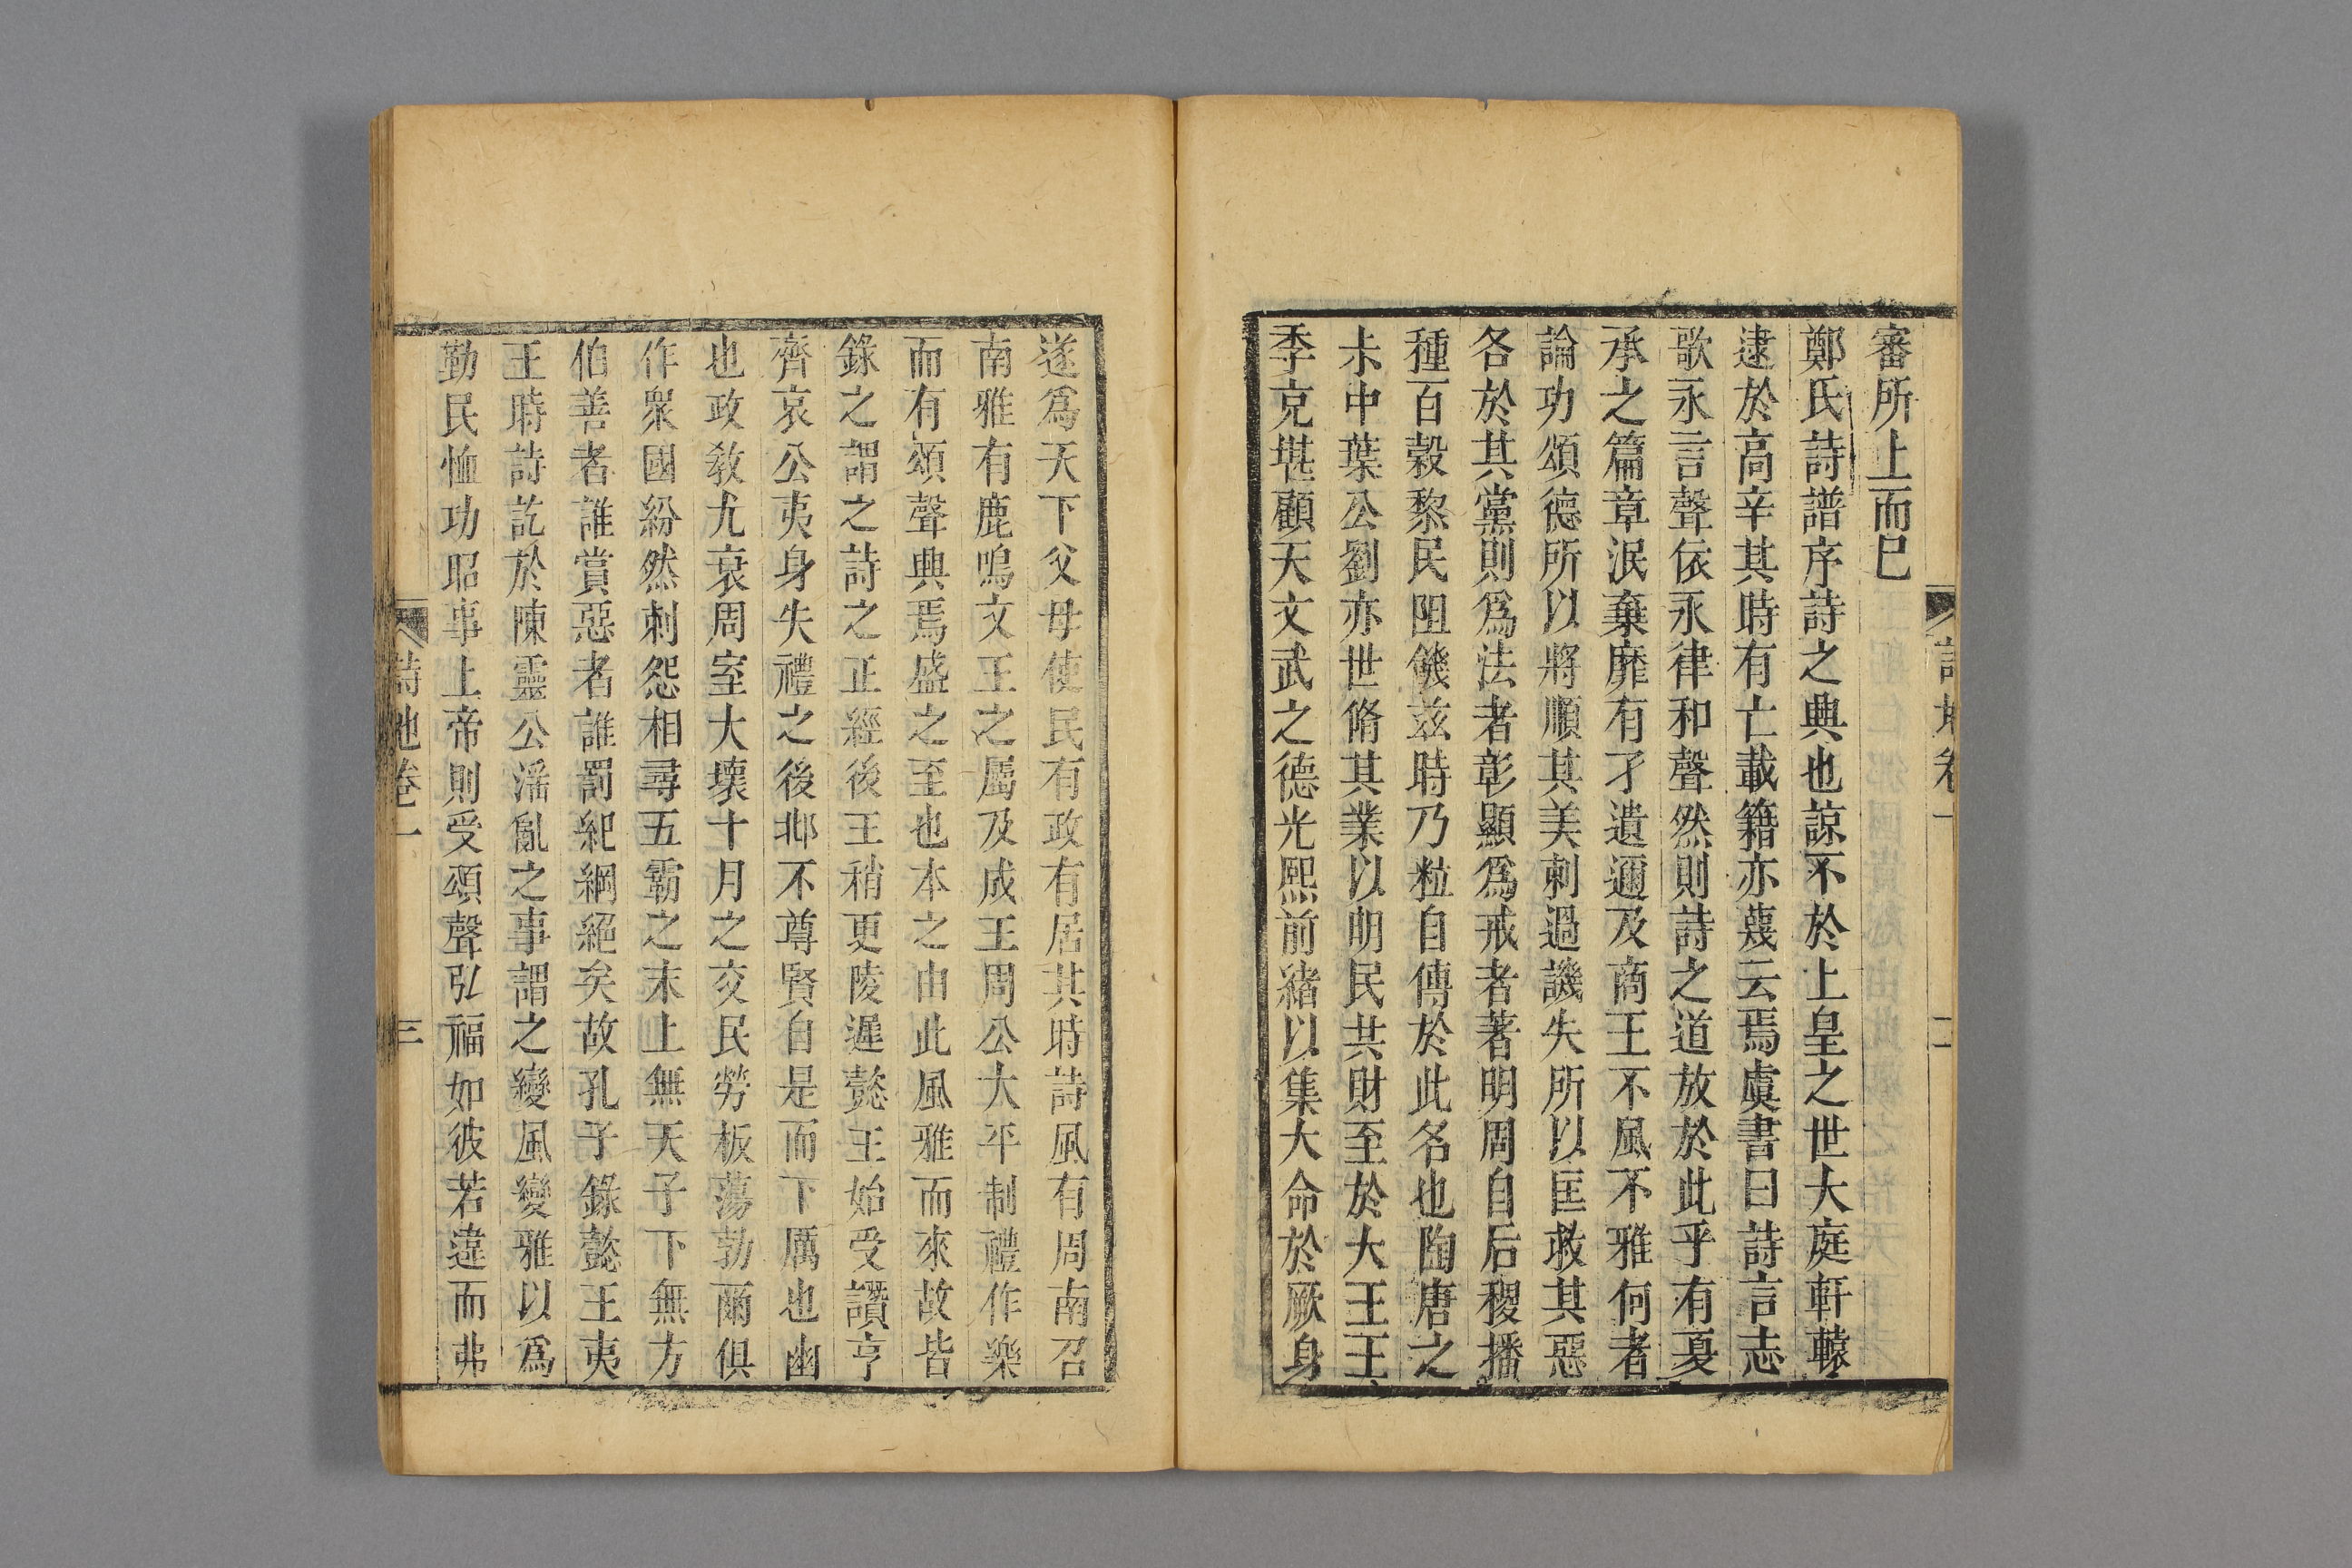 審所上而已
鄭氏詩譜序詩之典也諒不於上皇之世大庭軒轅
逮於高辛其時有亡載籍亦蔑云焉虞書曰詩言志
歌永言聲依永律和聲然則詩之道放於此乎有夏
承之篇章泯棄靡有孑遺邇及商王不風不雅何者
論功頌德所以將順其美刺過譏失所以匡救其惡
各於其黨則爲法者彰顯爲戒者著明周自后稷播
種百穀黎民阻饑茲時乃粒自傳於此名也陶唐之
末中葉公劉亦世脩其業以明民共財至於大王王
季克堪顧天文武之德光熙前緒以集大命於厥身
遂爲天下父母使民有政有居其時詩風有周南召
南雅有鹿鳴文王之屬及成王周公大平制禮作樂
而有頌聲典焉盛之至也本之由此風雅而來故皆
錄之謂之詩之正經後王稍更陵遲懿王始受譖亨
齊哀公夷身失禮之後邶不尊賢自是而下厲也幽
也政敎尤衰周室大壞十月之交民勞板蕩勃爾俱
作衆國紛然刺怨相尋五霸之末上無天子下無方
伯善者誰賞惡者誰罰紀綱絕矣故孔子錄懿王夷
王時詩訖於陳靈公滛亂之事謂之變風變雅以爲
勤民恤功昭事上帝則受頌聲弘福如彼若違而弗
詩地卷一
三